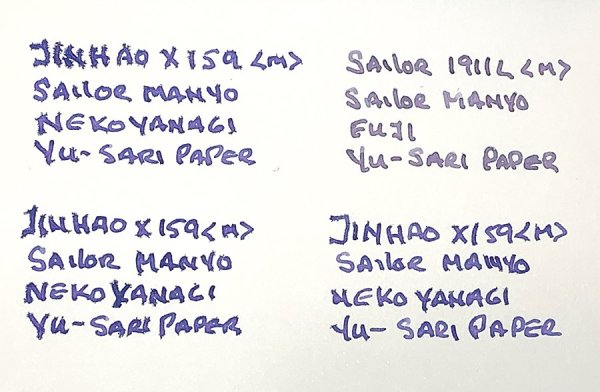 JINHAO X159 <M>
SAILOR MANYO
NEKOYANAGI
YU-SARI PAPER
SAILOR 1911L <M>
SAILOR MANYO
FUJI
YU-SARI PAPER
JINHAO X159 <M>
SAILOR MANYO
NEKO YANAGI
YU-SARI PAPER
JINHAO X159 <M>
SAILOR MANYO
NEKO YANAGI
YU-SARI PAPER